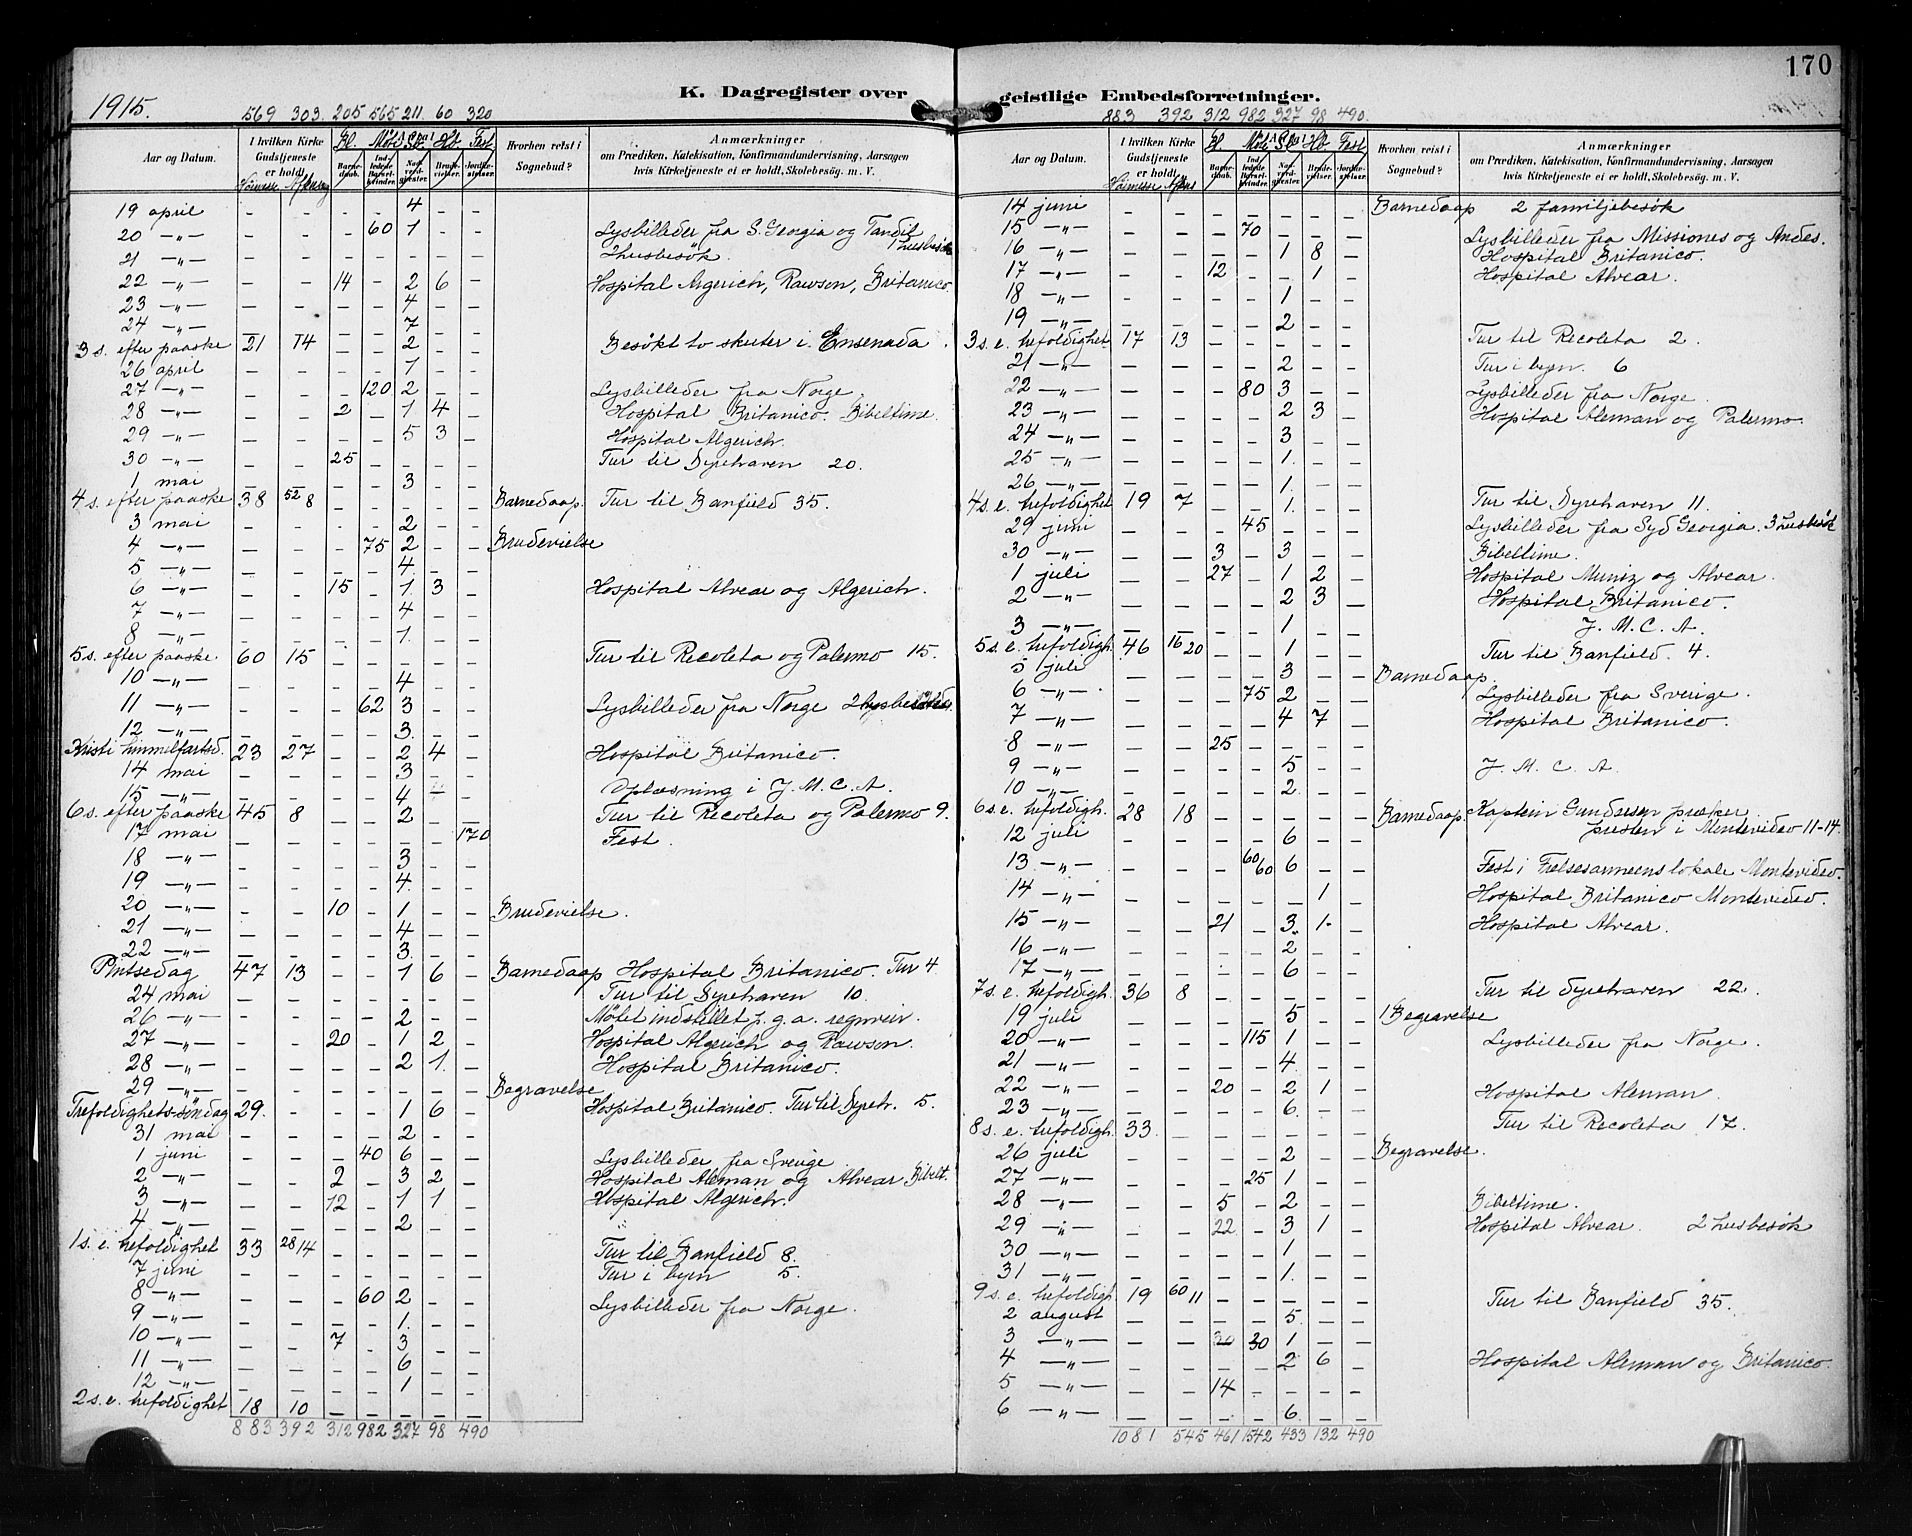 170
1915.
K. Dagregister over geistlige Embedsforretninger.
569 303. 205 565 211. 60 320
Aar og Datum.
I hvilken Kirke Gudstjeneste er holdt.
Høimesse Aftens
Barnedaab.
Indledede Barselkvinder.
Nadverdgjester.
Brudevielser.
Jordfæstelser.
Hvorhen reist i Sognebud?
Anmærkninger
om Prædiken, Katekisation, Konfirmandundervisning, Aarsagen
hvis Kirketjeneste ei er holdt, Skolebesøg. m. V.
19 april – – – – 4 – –
20 –"– – – – 60 1 – – Lysbilleder fra S. Georgia og Tandil 1 husbesök
21 –"– – – – – – – – 2 husbesök.
22 –"– – – 14 – 2 6 – Hospital Argerich, Rawson, Britanico.
23 –"– – – – – 4 – –
24 –"– – – – – 7 – –
3 s. efter paaske 21 14 – – 2 – – Besökt to skuter i Ensenada.
26 april – – – – 1 – –
27 –"– – – – 120 2 – – Lysbilleder fra Norge.
28 –"– – – 2 – 1 4 – Hospital Britanico. Bibeltime.
29 –"– – – – – 5 3 – Hospital Algerich.
30 –"– – – 25 – – – – Tur til Dyrehaven 20.
1 mai – – – – 3 – –
4 s. efter paaske 38 52 8 – – – – – Barnedaap. Tur til Banfield 35.
3 mai – – – – 2 – –
4 –"– – – – 75 2 – – Brudevielse
5 –"– – – – – 4 – –
6 –"– – – 15 – 1 3 – Hospital Alvear og Algerich.
7 –"– – – – – 4 – –
8 –"– – – – – 1. – –
5 s. efter paaske. 60 15 – – – – – Tur til Recoleta og Palermo 15.
10 –"– – – – – 4 – –
11 –"– – – – 62 3 – – Lysbilleder fra Norge
12 –"– – – – – 3. – –
Kristi himmelfartsd. 23 27 – – 2 4 – Hospital Britanico.
14 mai – – – – 3 – –
15 –"– – – – – 4 – – Oplæsning i J. M. C. A.
6 s. efter paaske 45 8 – – 2 – – Tur til Recoleta og Palermo 9.
17 mai – – – – – – 170 Fest.
18 –"– – – – – 3 – –
19 –"– – – – – 4. – –
20 –"– – – 10 – 1 – – Brudevielse.
21 –"– – – – – 4 – –
22 –"– – – – – 3. – –
Pintsedag 47 13 – – 1 6 – Barnedaap Hospital Britanico. Tur 4.
24 mai – – – – – – – Tur til Dyrehaven 10.
26 –"– – – – – 2 – – Møtet indstillet p. g. a. regnveir.
27 –"– – – 20 – 1 2 – Hospital Algerich og Rawson.
28 –"– – – – – 2 1. – Hospital Britanico.
29 –"– – – – – – – – Begravelse
Trefoldighets-söndag 29. – – – 1 6 – Hospital Britanico. Tur til Dyreh. 5.
31 mai – – – – 2 – –
1 juni – – – 40 6 – – Lysbilleder fra Sverige
2 –"– – – 2 – 3 2 – Hospital Aleman og Alvear Bibelt.
3 –"– – – 12 – 1 1 – Hospital Algerich.
4 –"– – – – – 2 – –
1 s. e. trefoldighet 33 28 14 – – – – – Tur til Banfield 8.
7 juni – – – – – – – Tur i byen 5.
8 –"– – – – 60 2 – – Lysbilleder fra Norge.
9 –"– – – – – 1. – –
10 –"– – – 7 – 3 – –
11 –"– – – – – 6 – –
12 –"– – – – – 1 – –
2 s. e. trefoldighet 18 10 – – – – –
883 392 312 982 327 98 490
883 392 312 982 327 98 490.
Aar og Datum.
I hvilken Kirke Gudstjeneste er holdt.
Høimesse Aftens
Barnedaab.
Indledede Barselkvinder.
Nadverdgjester.
Brudevielser.
Jordfæstelser.
Hvorhen reist i Sognebud?
Anmærkninger
om Prædiken, Katekisation, Konfirmandundervisning, Aarsagen
hvis Kirketjeneste ei er holdt, Skolebesøg. m. V.
14 juni – – – – – – – Barnedaap 2 familjebesök
15 –"– – – – 70 – – – Lysbilleder fra Missiones og Andes.
16 –"– – – – – 1 8 – Hospital Britanico.
17 –"– – – 12 – – 1 – Hospital Alvear.
18 –"– – – – – 1 – –
19 –"– – – – – 2 – –
3 s. e. trefoldighet. 17 13 – – – – – Tur til Recoleta 2.
21 –"– – – – – 2 – – Tur i byen. 6
22 –"– – – – 80 3 – – Lysbilleder fra Norge.
23 –"– – – – – 2 3 – Hospital Aleman og Palermo.
24 –"– – – – – 3 – –
25 –"– – – – – 1. – –
26 –"– – – – – 1. – –
4 s. e. trefoldighet 19 7 – – 1. – – Tur til Dyrehaven 11.
29 juni – – – 45 – – – Lysbilleder fra Syd Georgia. 3 husbesök
30 –"– – – 3 – 3 – – Bibeltime.
1 juli – – 27 – 1 2 – Hospital Muniz og Alvear.
2 –"– – – – – 2 3 – Hospital Britanico.
3 –"– – – – – 1 – – J. M. C. A.
5 s. e. trefoldigh. 46 16 20 – – 1 – – Tur til Banfield. 4.
5 juli – – – – 3 – – Barnedaap.
6 –"– – – – 75 2 – – Lysbilleder fra Sverige.
7 –"– – – – – 4 7 – Hospital Britanico.
8 –"– – – 25 – – – –
9 –"– – – – – 5 – – J. M. C. A.
10 –"– – – – – 2. – –
6 s. e. trefoldigh. 28 18 – – – – – Barnedaap. Kaptein Gundersen præker
12 juli – – – – 6 – – presten i Montevideo 11–14.
13 –"– – – – 60 60 6 – – Fest i Frelsesarmeens lokale Montevideo.
14 –"– – – – – – 1 – Hospital Britanico Montevideo.
15 –"– – – 21 – 3. 1. – Hospital Alvear.
16 –"– – – – – 2 – –
17 –"– – – – – 6 – –
7 s. e. trefoldigh. 36 8 – – – – – Tur til Dyrehaven 22.
19 juli – – – – 5 – – 1 Begravelse
20 –"– – – – 115 1 – – Lysbilleder fra Norge.
21 –"– – – – – 4 – –
22 –"– – – 20 – 2 1 – Hospital Aleman.
23 –"– – – – – 6. – –
8 s. e. trefoldigh. 33. – – – – – – Tur til Recoleta 17.
26 juli – – – – 2 – – Begravelse.
27 –"– – – – 25 1 – –
28 –"– – – 5 – 2 – – Bibeltime.
29 –"– – – 22 – 3 1 – Hospital Alvear. 2 husbesök
30 –"– – – – – 1 – –
31 –"– – – – – 1. – –
9 s. e. trefoldigh. 19 60 11 – – – – – Tur til Banfield 35.
2 august – – – – 5. – –
3 –"– – – 30 30 1 – –
4 –"– – – – – 2 6 – Hospital Aleman og Britanico.
5 –"– – – 14 – – – –
6 –"– – – – – 6 – –
1081 545 461 1542 433 132 490